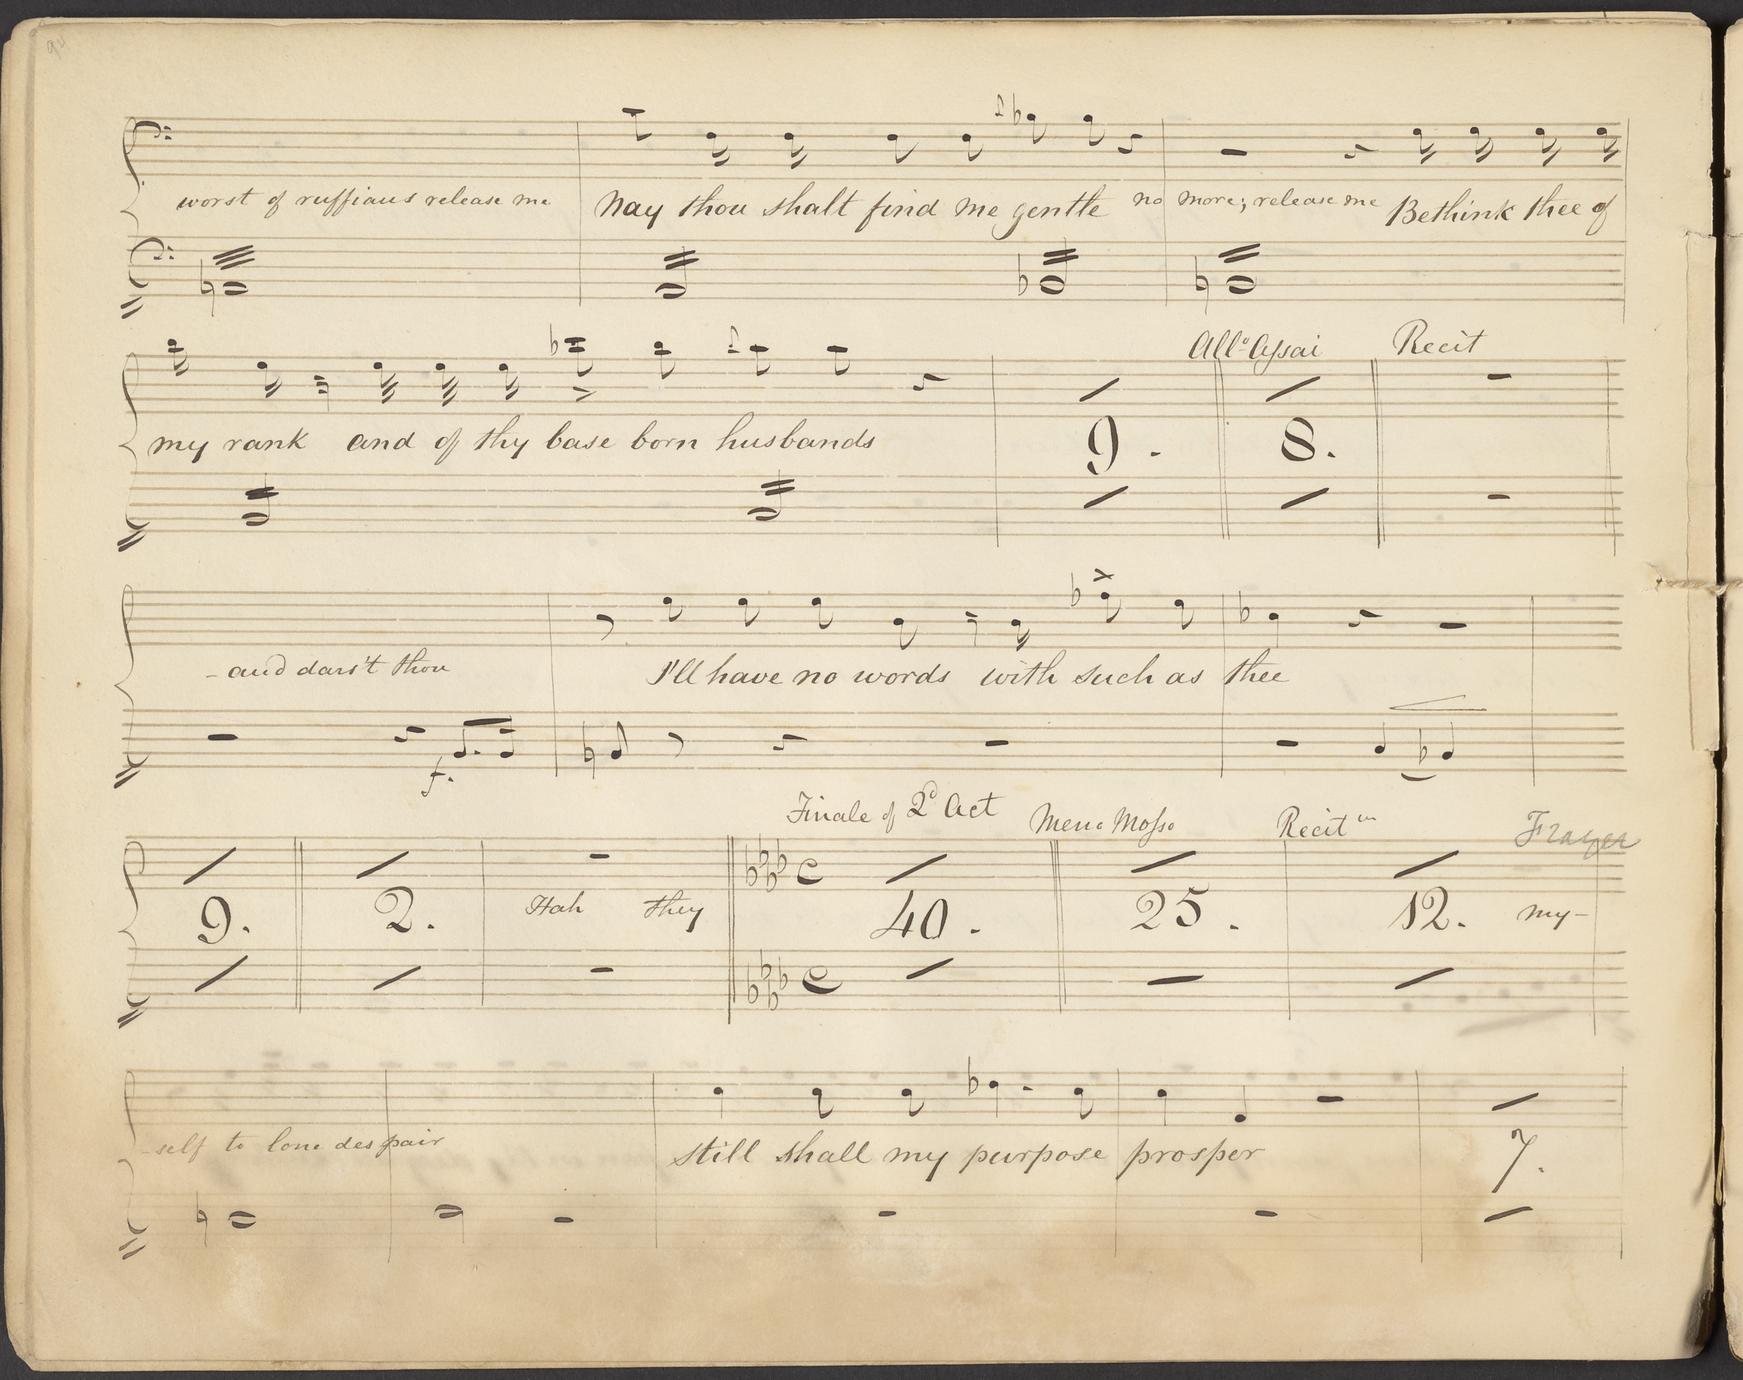 worst of ruffians release me Nay thou shalt find me gentle no more; release me Bethink thee of
All.o Assai Recit
my rank and of thy base born husbands 9. 8.
- and dars't thou I'll have no words with such as thee
f.
Finale of 2d Act Meno Mosso Recit
9. 2. Hah they 40. 25. 12. my-
-self to lone despair still shall my purpose prosper 7.